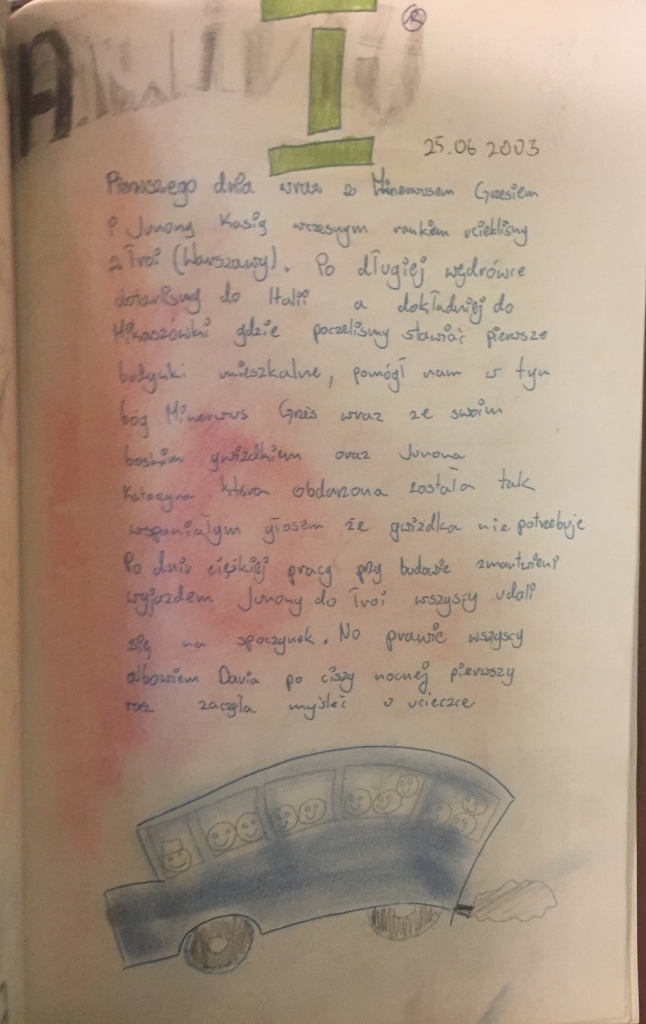 I
®
A
25.06.2003
Pierwszego dnia wraz z Minerwusem Grzesiem
i Junoną Kasią wczesnym rankiem uciekliśmy
z Troi (Warszawy). Po długiej wędrówce
dotarliśmy do Italii a dokładniej do
Mikaszówki gdzie poczeliśmy stawiać pierwsze
budynki mieszkalne, pomógł nam w tym
bóg Minerwus Grześ wraz ze swoim
boskim gwizdkiem oraz Junona
Katarzyna która obdarzona została tak
wspaniałym głosem że gwizdka nie potrzebuje
Po dniu ciężkiej pracy przy budowie zmartwieni
wyjazdem Junony do Troi wszyscy udali
się na spoczynek. No prawie wszyscy
albowiem Daria po ciszy nocnej pierwszy
raz zaczęła myśleć o ucieczce